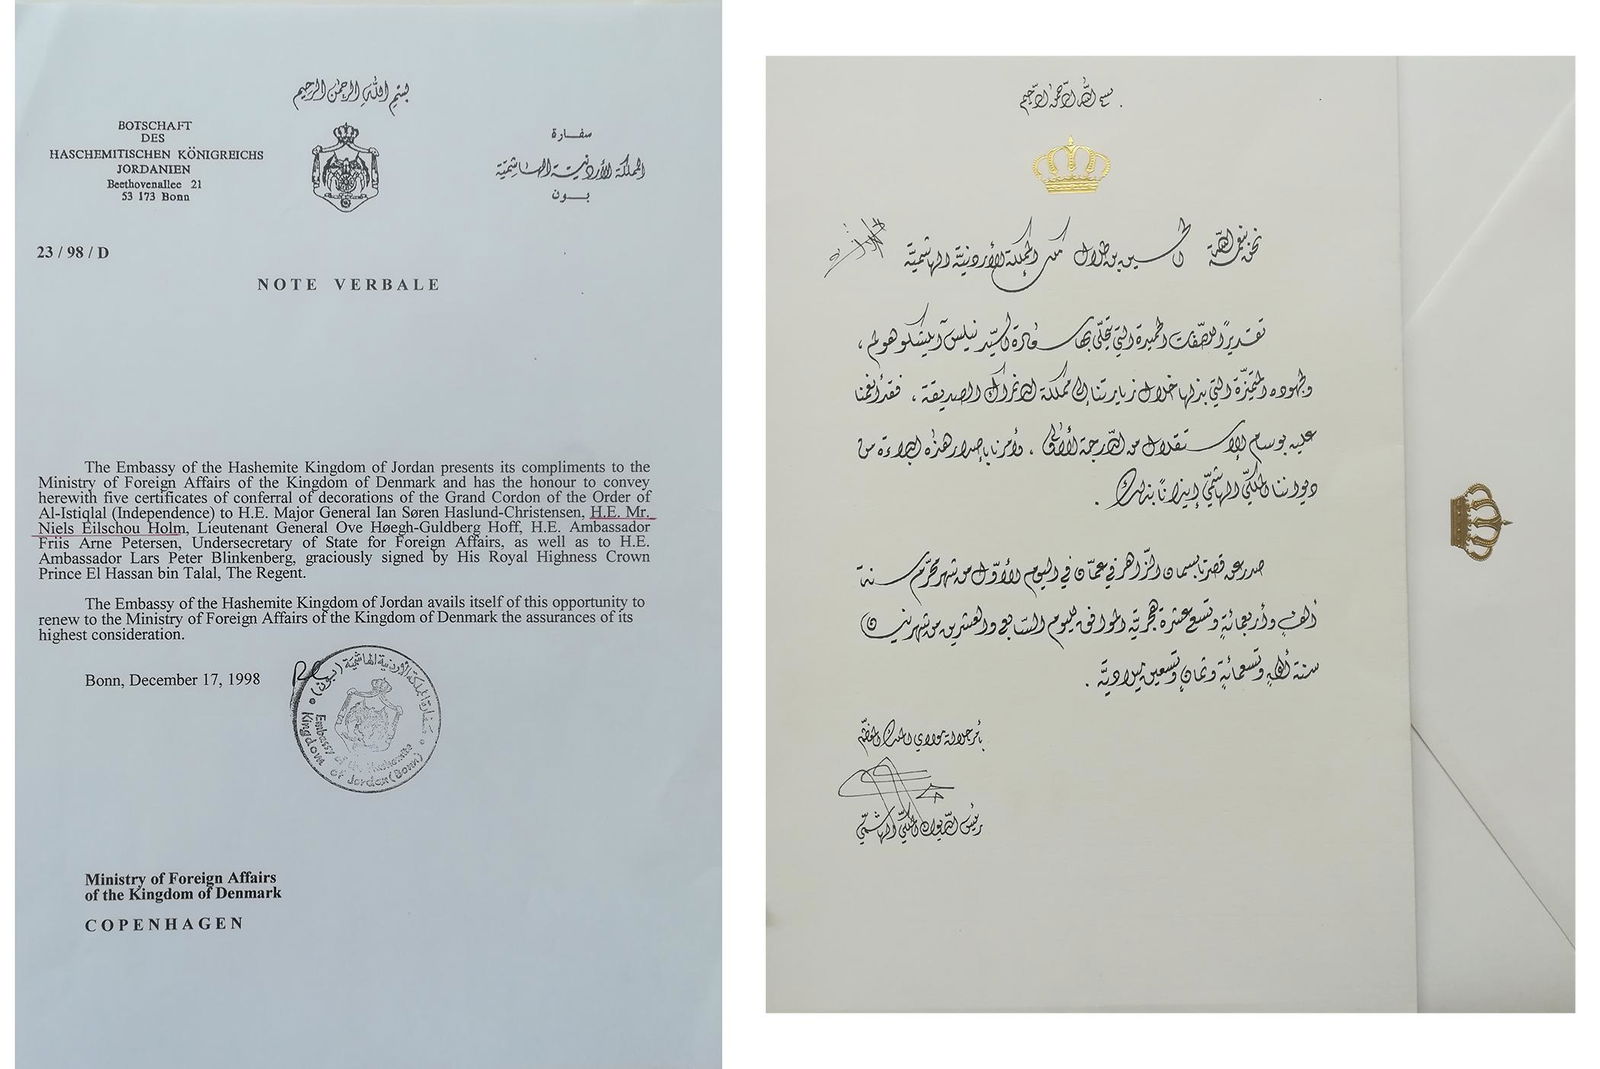 بسم الله الرحمن الرحيم
BOTSCHAFT
DES
HASCHEMITISCHEN KÖNIGREICHS
JORDANIEN
Beethovenallee 21
53 173 Bonn
سفارة
المملكة الأردنية الهاشمية
بون
23 / 98 / D
NOTE VERBALE
The Embassy of the Hashemite Kingdom of Jordan presents its compliments to the
Ministry of Foreign Affairs of the Kingdom of Denmark and has the honour to convey
herewith five certificates of conferral of decorations of the Grand Cordon of the Order of
Al-Istiqlal (Independence) to H.E. Major General Ian Søren Haslund-Christensen, H.E. Mr.
Niels Eilschou Holm, Lieutenant General Ove Høegh-Guldberg Hoff, H.E. Ambassador
Friis Arne Petersen, Undersecretary of State for Foreign Affairs, as well as to H.E.
Ambassador Lars Peter Blinkenberg, graciously signed by His Royal Highness Crown
Prince El Hassan bin Talal, The Regent.
The Embassy of the Hashemite Kingdom of Jordan avails itself of this opportunity to
renew to the Ministry of Foreign Affairs of the Kingdom of Denmark the assurances of its
highest consideration.
Bonn, December 17, 1998
سفارة المملكة الأردنية الهاشمية (بون)
Embassy of the Hashemite
Kingdom of Jordan (Bonn)
Ministry of Foreign Affairs
of the Kingdom of Denmark
COPENHAGEN
بسم الله الرحمن الرحيم
نحن بنعمة الله الحسين بن طلال ملك المملكة الأردنية الهاشمية
تقديرًا للصفات الحميدة التي تحلّى بها سعادة السيد نيلس آيلشكو هولم ،
ولجهوده المتميّزة التي بذلها خلال زيارتنا إلى مملكة الدنمارك الصديقة ، فقد أنعمنا
عليه بوسام الاستقلال من الدرجة الأولى ، وأمرنا بإصدار هذه البراءة من
ديواننا الملكيّ الهاشميّ إيذانًا بذلك .
صدر عن قصرنا بسمان الزاهر في عمّان في اليوم الأوّل من شهر محرّم سنة
ألف وأربعمائة وتسع عشرة هجريّة الموافق لليوم السابع والعشرين من شهر نيسان
سنة ألف وتسعمائة وثمان وتسعين ميلاديّة .
بأمر جلالة مولاي الملك المعظّم
رئيس الديوان الملكيّ الهاشميّ